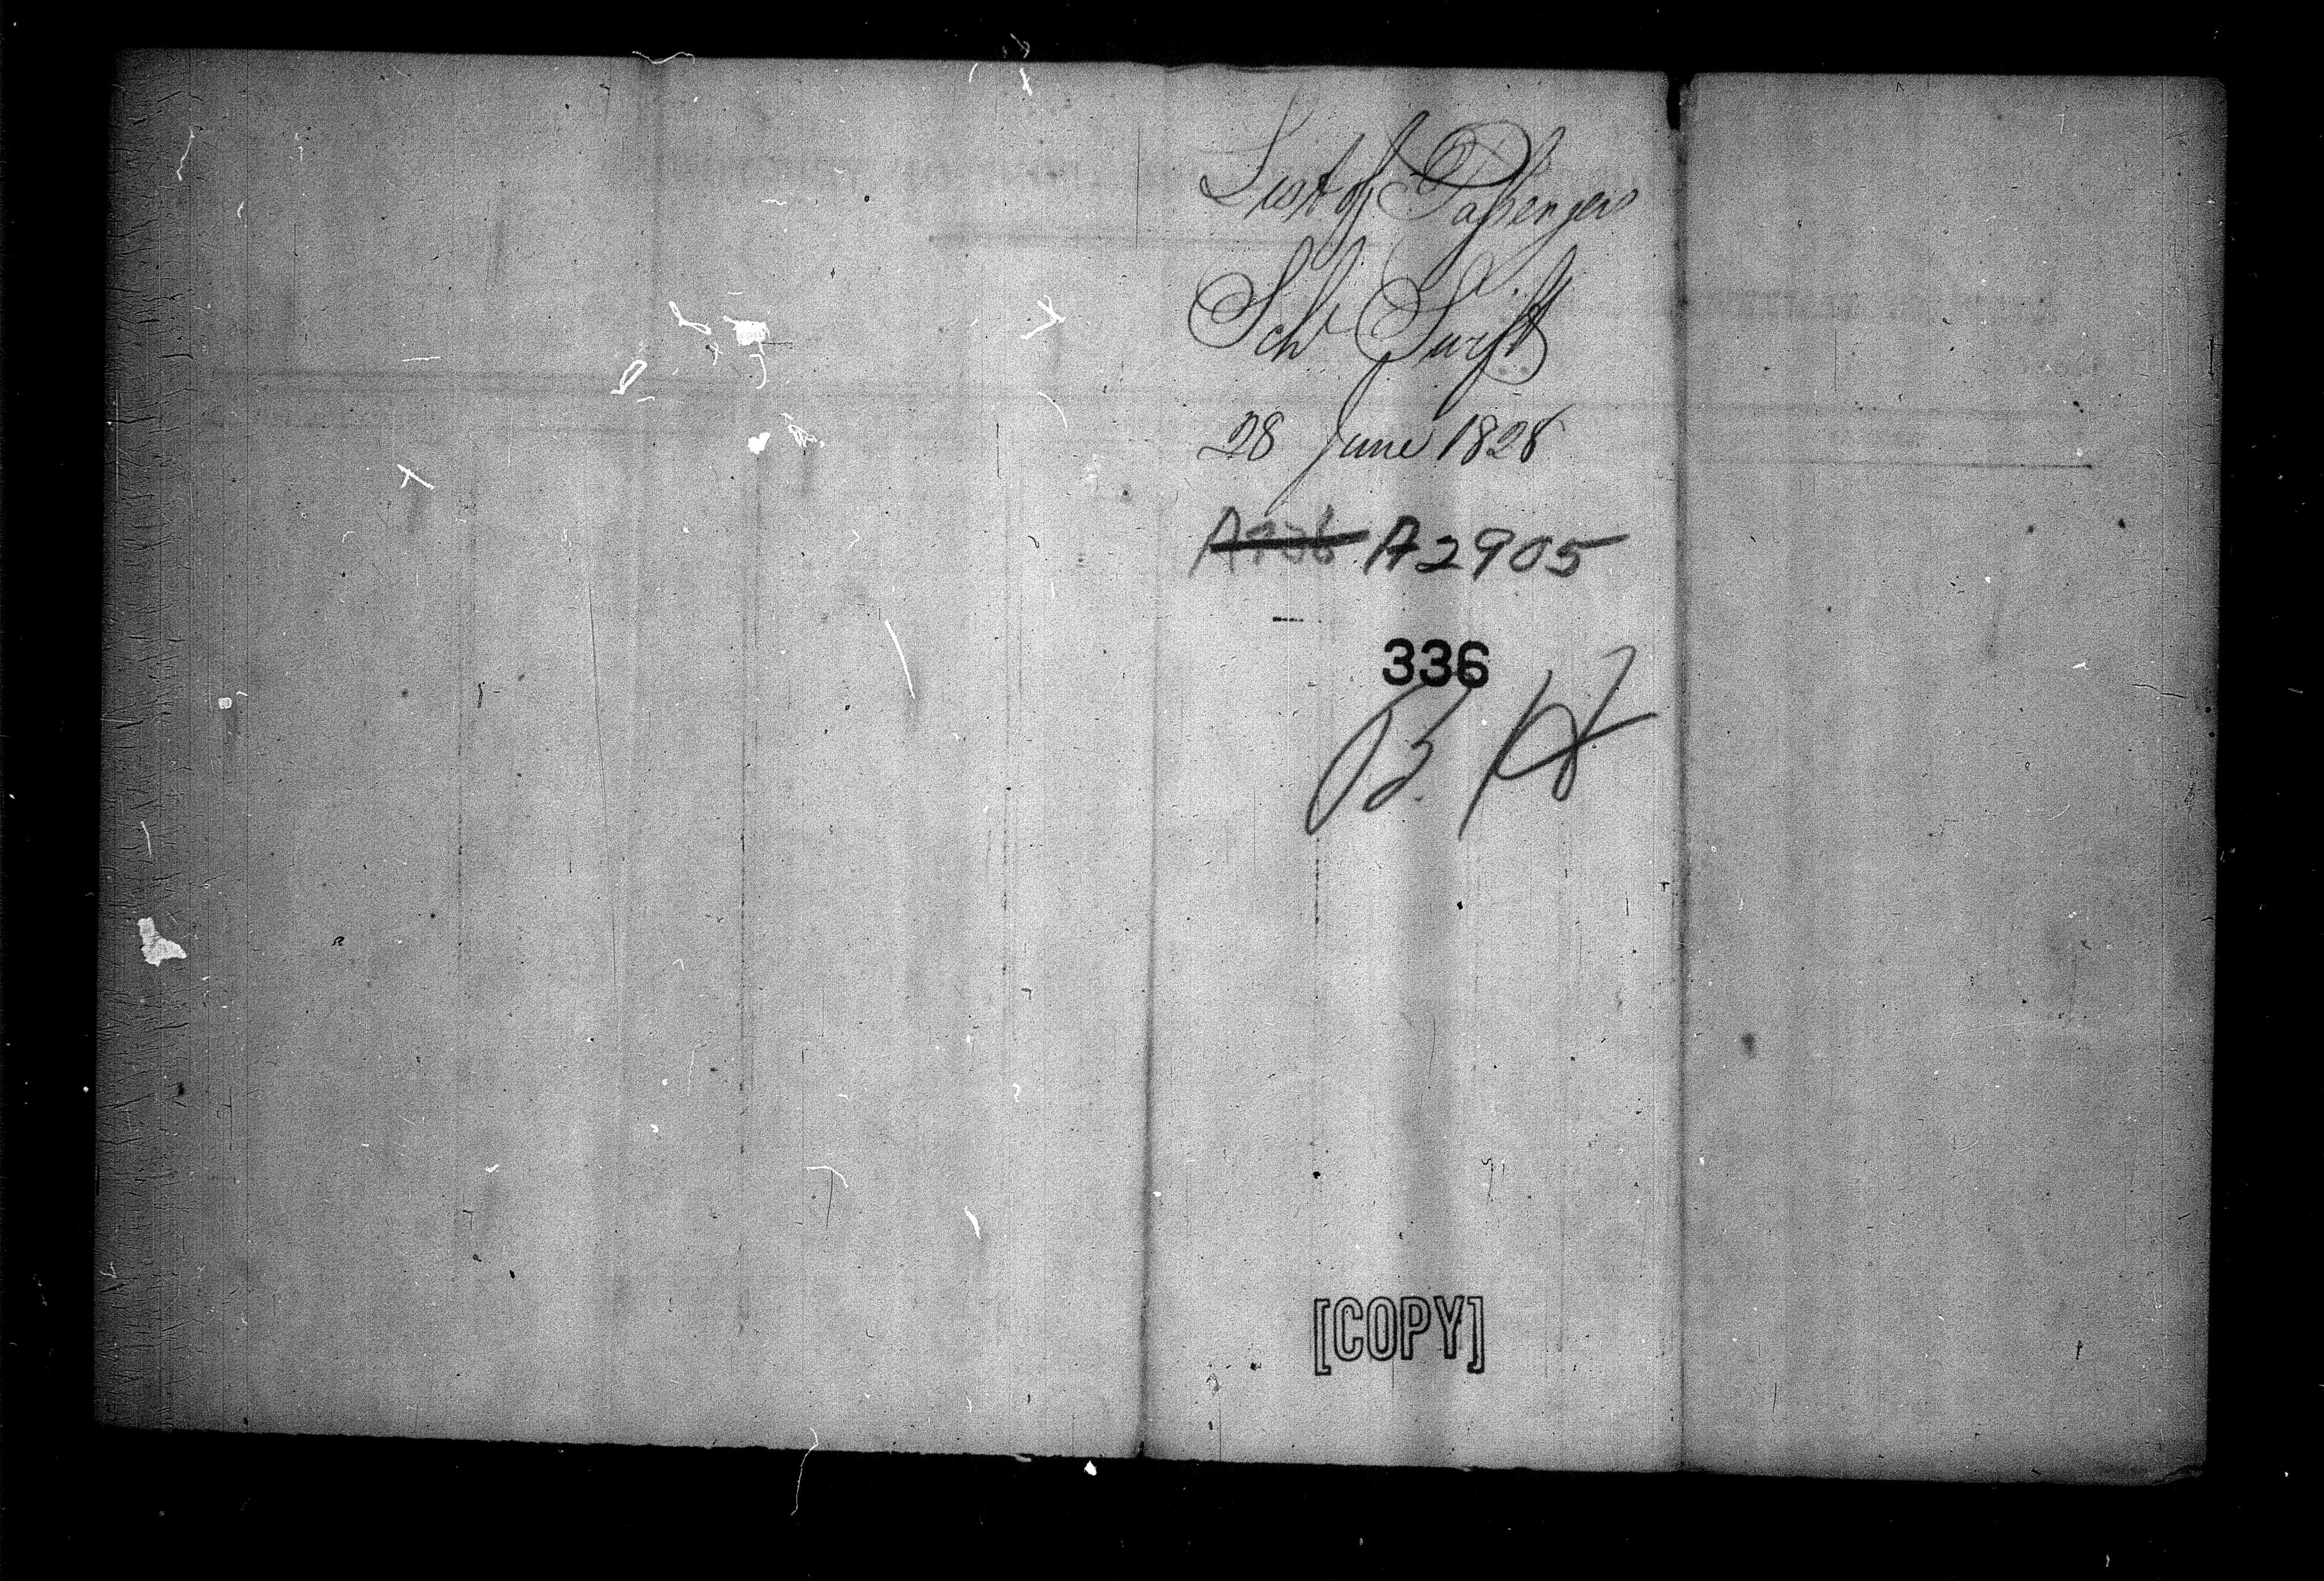 List of Passengers
Schr Swift
28 June 1828
A2905
336
[COPY]